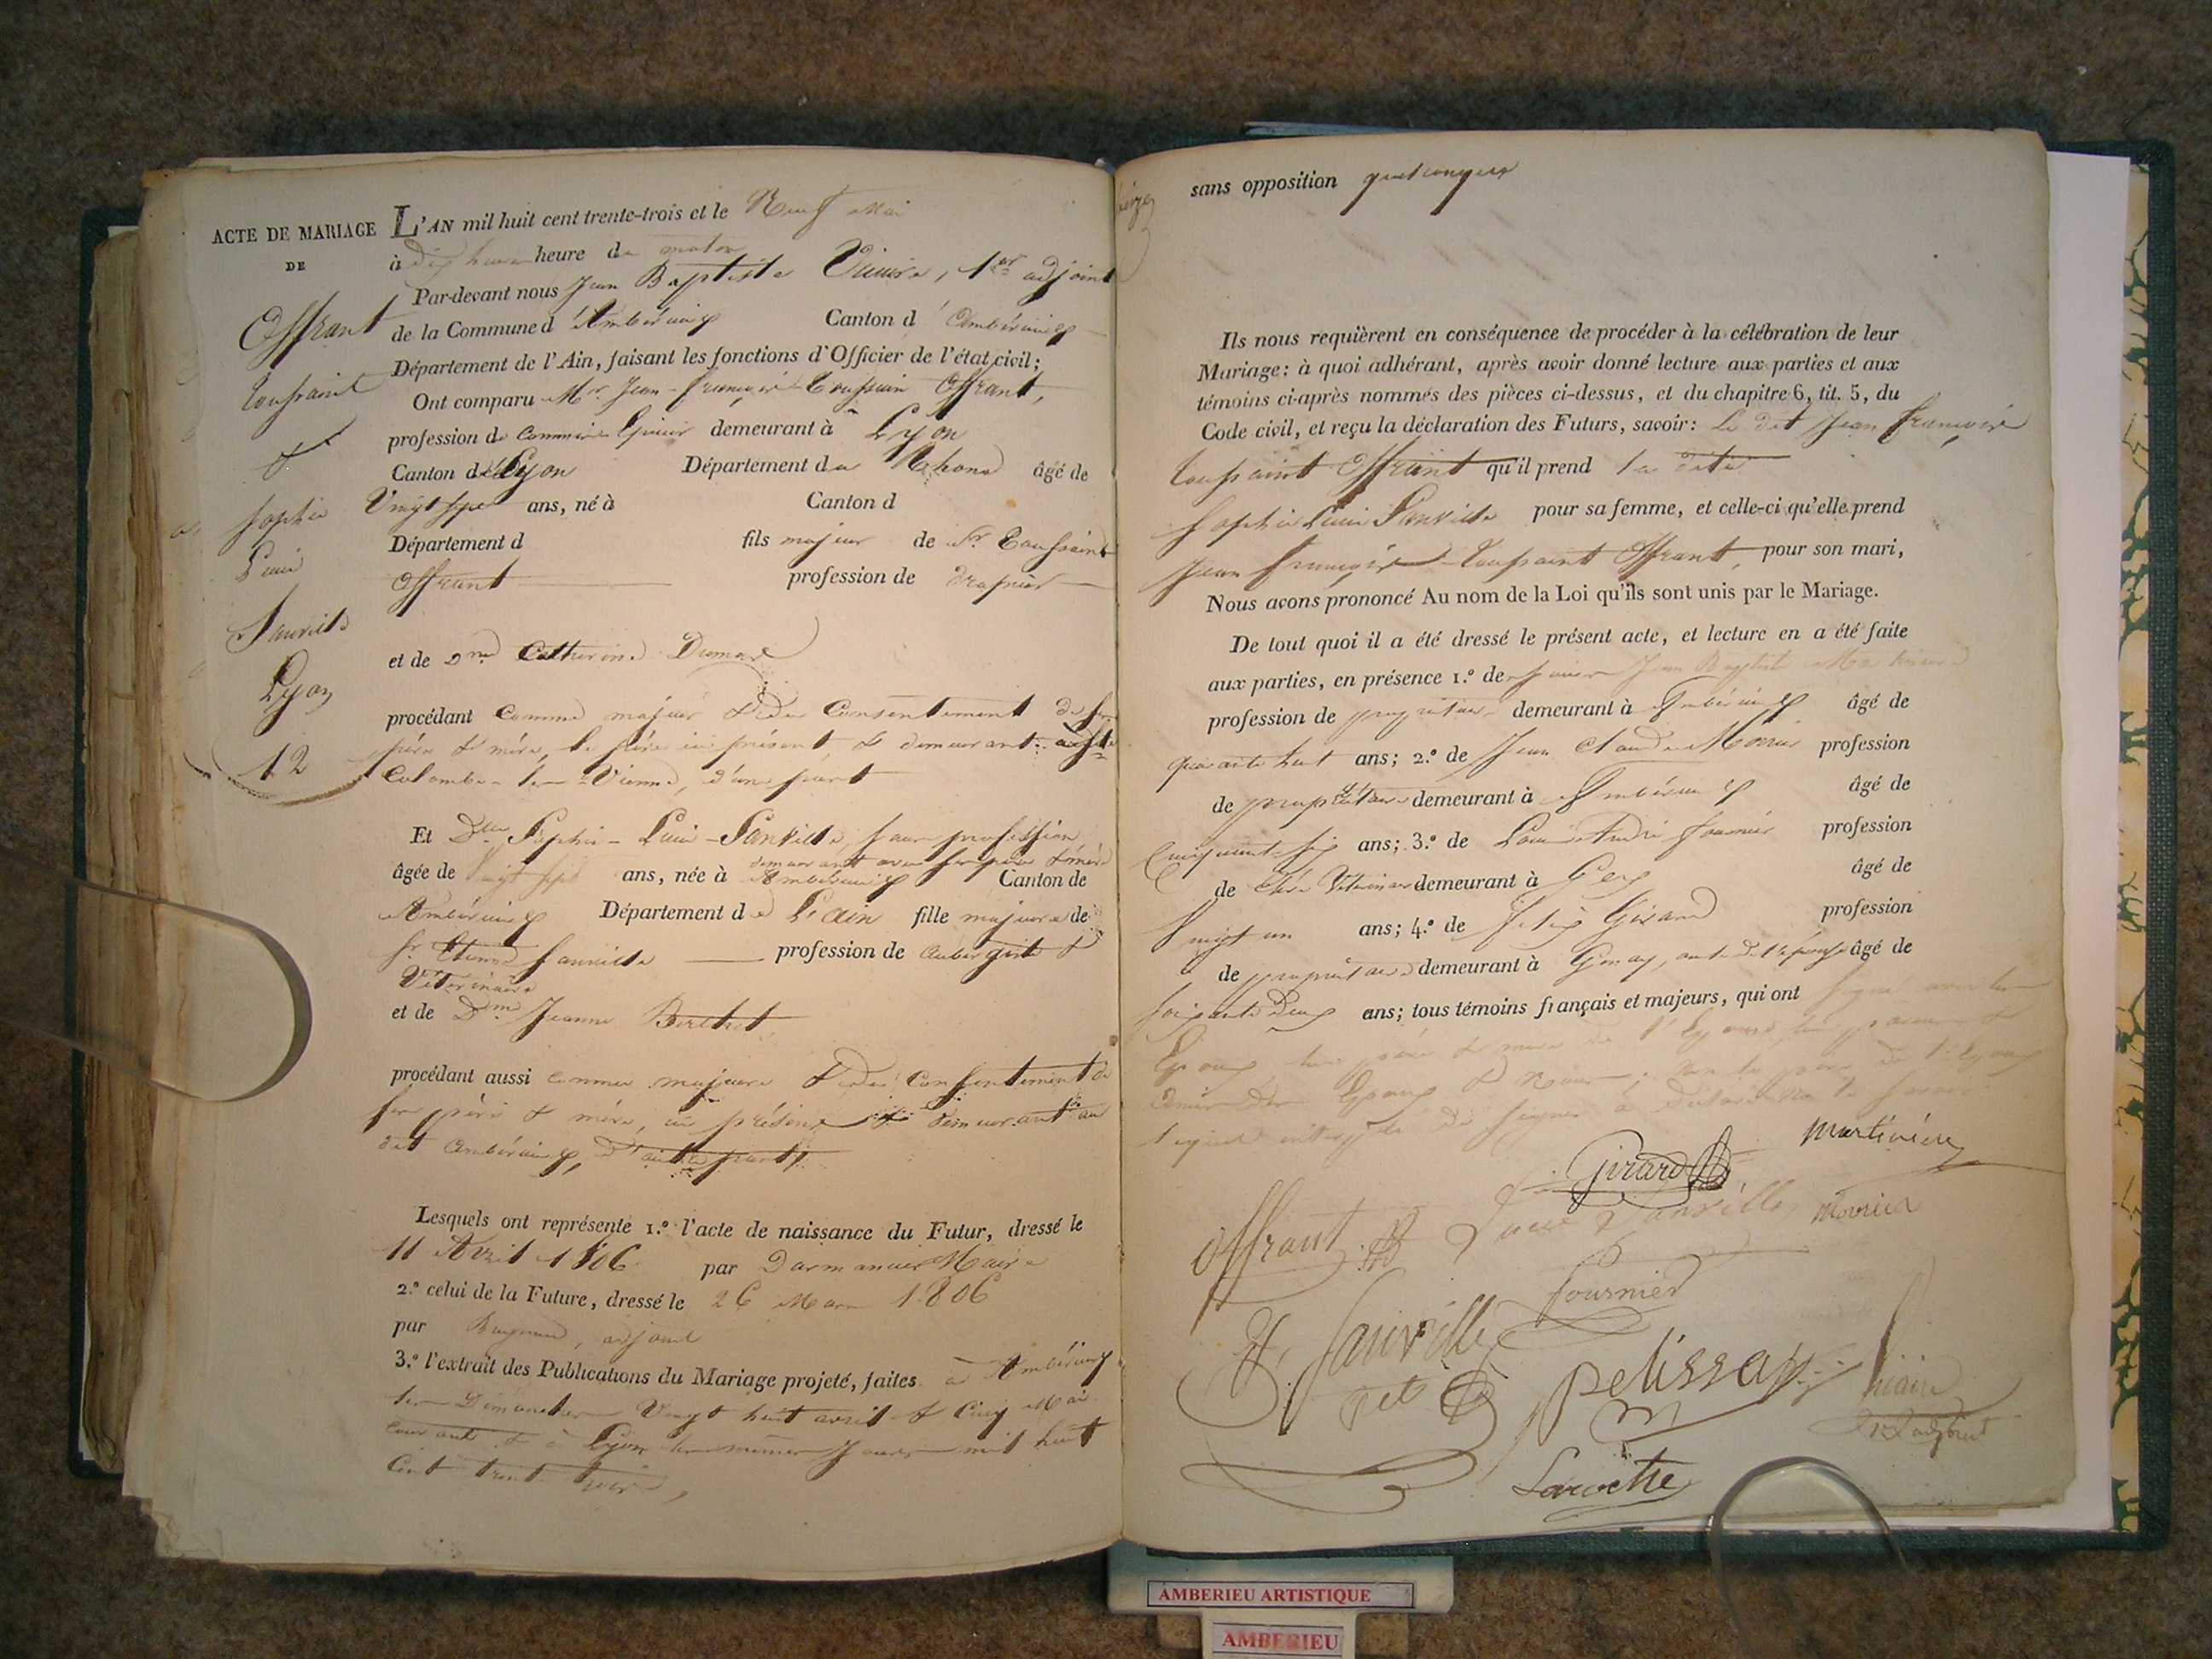 ACTE DE MARIAGE
DE
Offrant
Toussaint
&
Sophie
Sanville
Lyon
12
L'AN mil huit cent trente-trois et le Neuf Mai
à dix heure du matin
Par-devant nous Jean Baptiste 1er adjoint
de la Commune d'Ambérieux Canton d'Ambérieux
Département de l'Ain, faisant les fonctions d'Officier de l'état civil;
Ont comparu Mr. Jean-François Toussain Offrant,
profession de Commis demeurant à Lyon
Canton de Lyon Département du Rhone âgé de
Vingt sept ans, né à Canton d
Département d fils majeur de Sr. Toussaint
Offrant profession de
et de Dme Catherine
procédant Comme majeur & du Consentement de ses
père & mère, le père ici présent & demeurant à Ste
Colombe-les-Vienne, d'une part
Et Dlle Sophie- -Sanville, sans profession
demeurant avec ses père & mère
âgée de Vingt sept ans, née à Ambérieux Canton de
Ambérieux Département de L'ain fille majeure de
Sr. Etienne Sanville profession de aubergiste &
Vétérinaire
et de Dme Jeanne Berthet
procédant aussi comme majeure & du Consentement de
ses père & mère, ici présens & demeurant au
dit Ambérieux, d'autre part.
Lesquels ont représenté 1.º l'acte de naissance du Futur, dressé le
11 Avril 1806 par Maire
2.º celui de la Future, dressé le 26 Mars 1806
par adjoint
3.º l'extrait des Publications du Mariage projeté, faites à Ambérieux
les Dimanches Vingt huit avril & Cinq Mai
courant & à Lyon les mêmes jours mil huit
Cent trente trois,
sans opposition quelconque
Ils nous requièrent en conséquence de procéder à la célébration de leur
Mariage: à quoi adhérant, après avoir donné lecture aux parties et aux
témoins ci-après nommés des pièces ci-dessus, et du chapitre 6, tit. 5, du
Code civil, et reçu la déclaration des Futurs, savoir: Le dit Jean François
Toussaint Offrant qu'il prend la dite
Sophie Sanville pour sa femme, et celle-ci qu'elle prend
Jean François-Toussaint Offrant, pour son mari,
Nous avons prononcé Au nom de la Loi qu'ils sont unis par le Mariage.
De tout quoi il a été dressé le présent acte, et lecture en a été faite
aux parties, en présence 1.º de Jean Baptiste
profession de propriétaire demeurant à Ambérieux âgé de
quarante huit ans; 2.º de Jean Claude profession
de propriétaire demeurant à Ambérieux âgé de
Cinquante six ans; 3.º de André Fournier profession
de Vétérinaire demeurant à Gex âgé de
Vingt un ans; 4.º de Girard profession
de propriétaire demeurant à âgé de
Soixante deux ans; tous témoins français et majeurs, qui ont signé avec les
Epoux, les père & mère de l'Epouse
Martinière
Girard
Offrant Sanville
Fournier
Sanville
pelissay
Larochette
AMBERIEU ARTISTIQUE
AMBERIEU